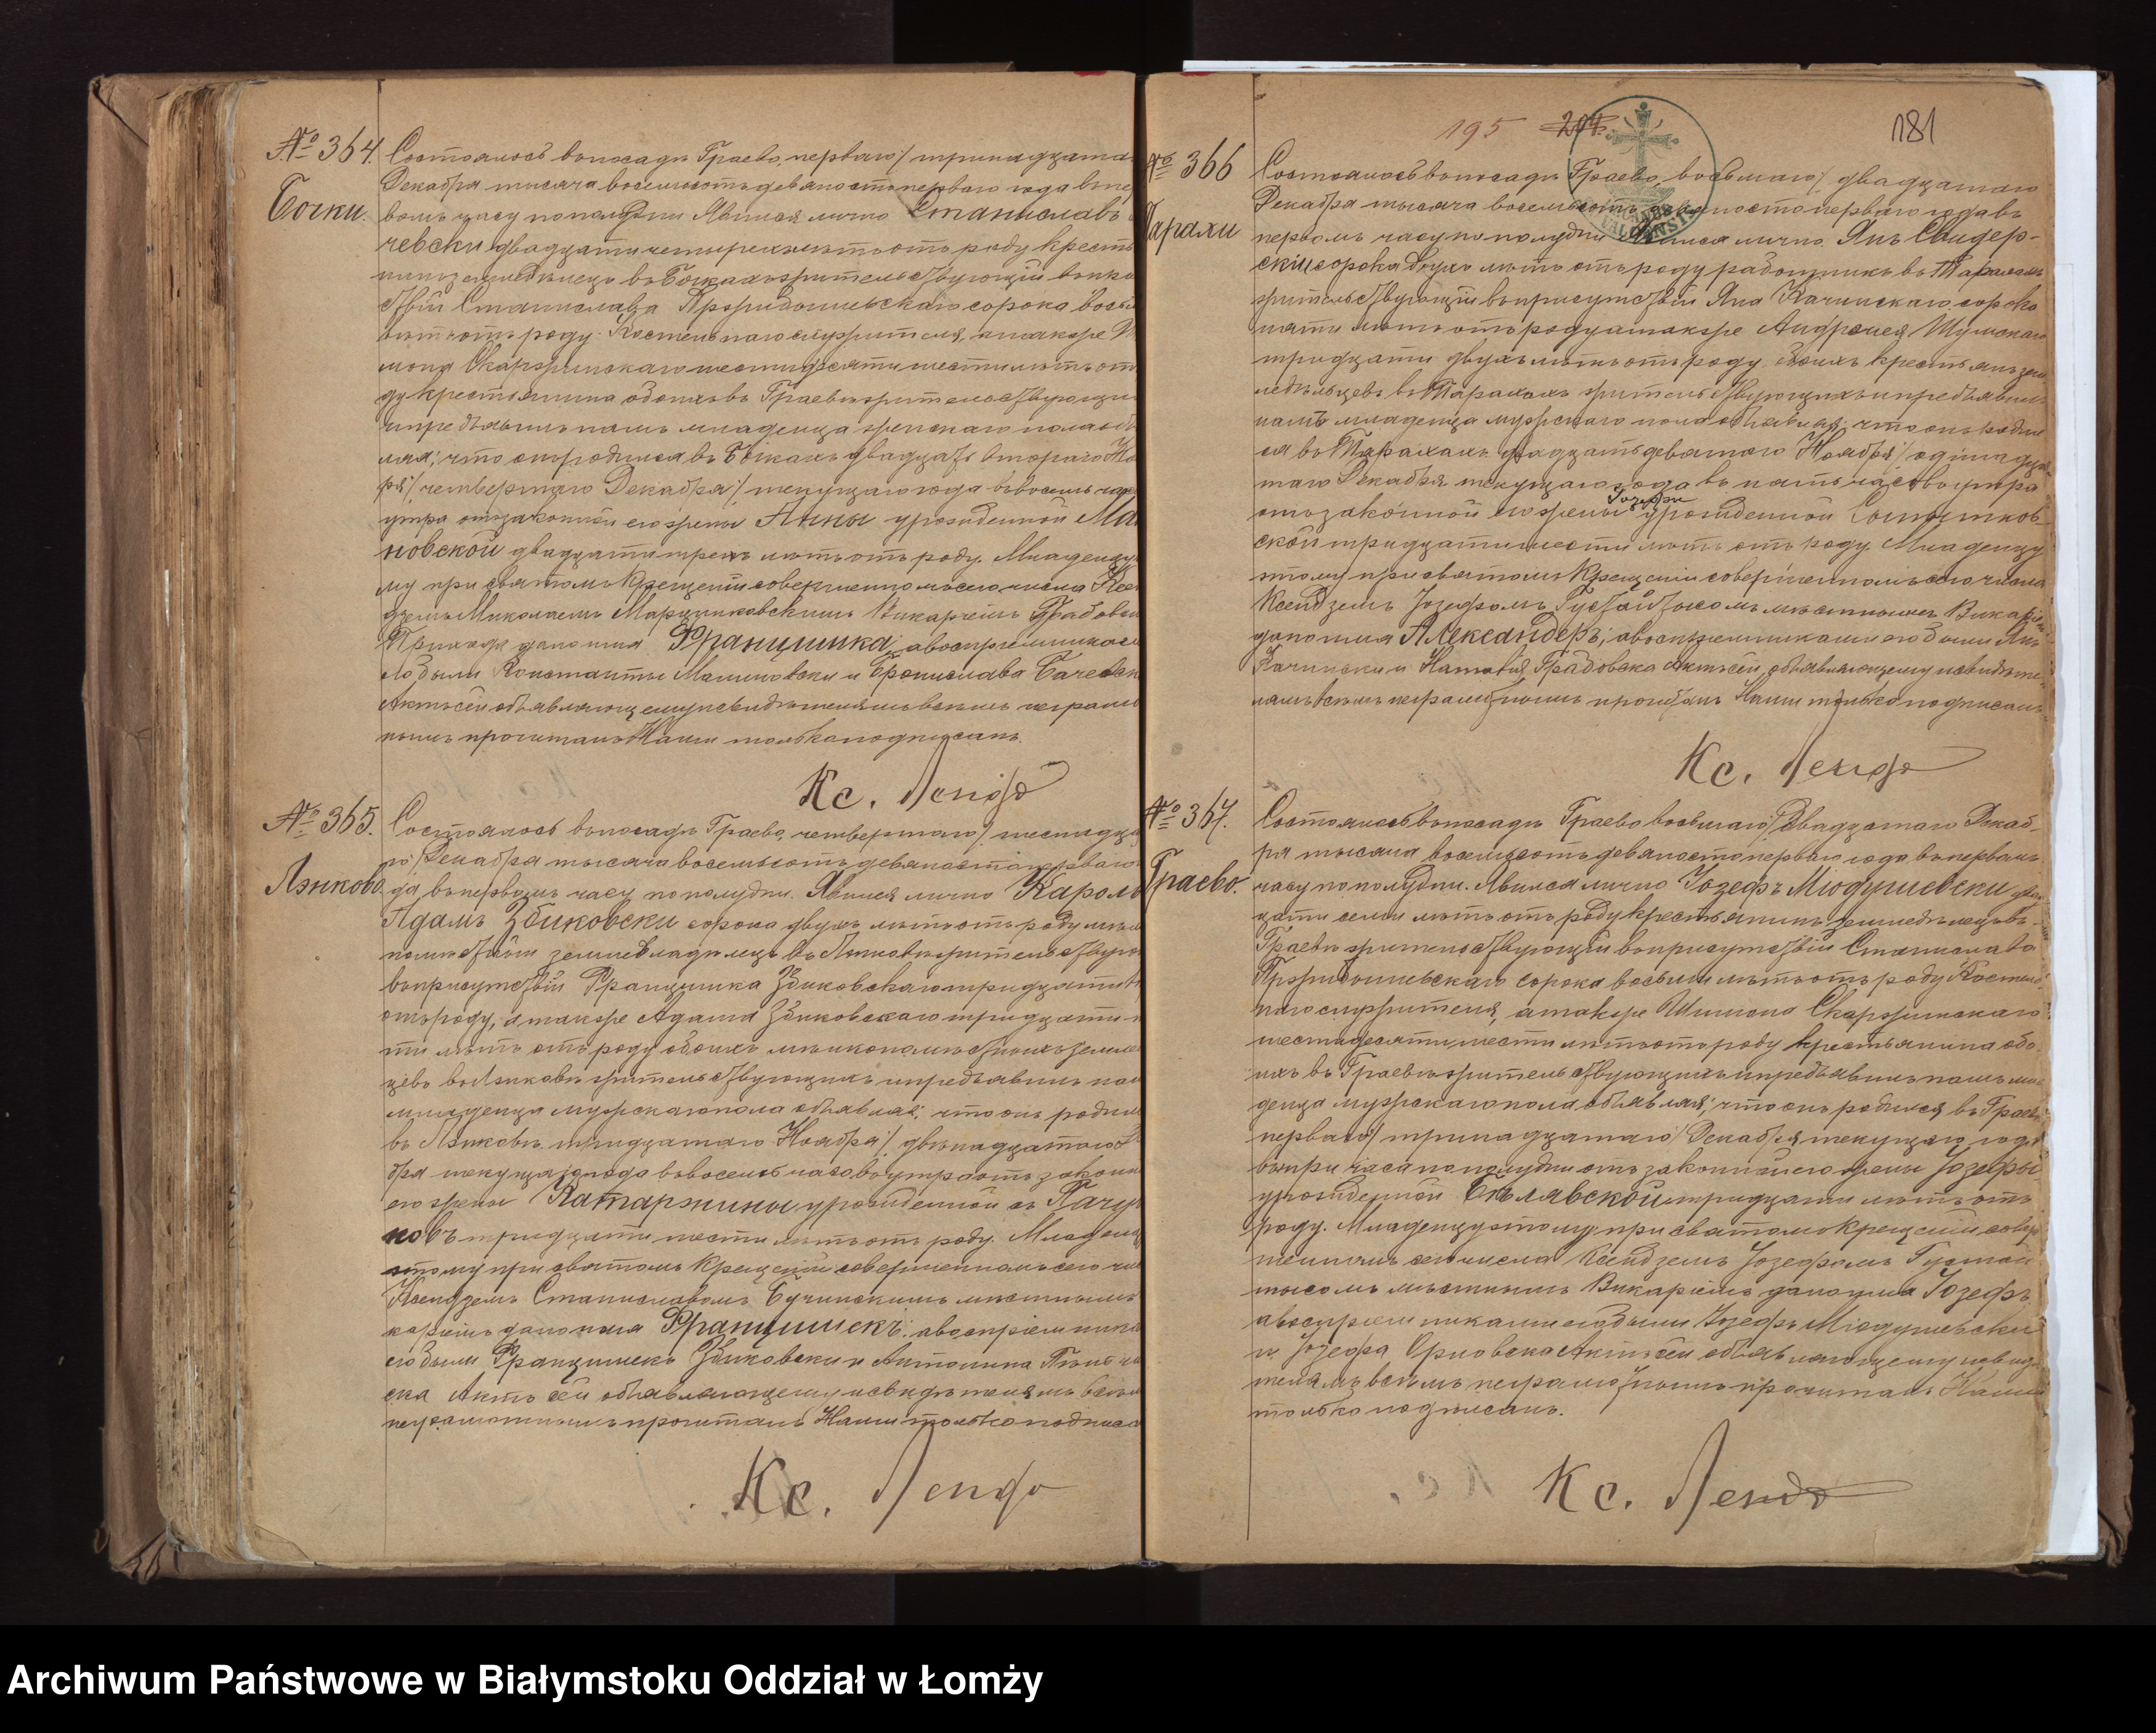 № 364.
Бочки.
Состоялось въ посадѣ Граево, перваго / тринадцата
Декабря тысяча восемьсотъ девяносто перваго года въ пе
вомъ часу по полудни. Явился лично Станиславъ
чевски двадцати четырехъ лѣтъ отъ роду кресть
земледѣлецъ въ Бочкахъ жительствующій въ
ствіи Станислава Пржибышевскаго сорока вось
лѣтъ отъ роду Костельнаго служителя, а также
мона Скаржинскаго шестидесяти шести лѣтъ отъ
ду крестьянина обоихъ въ Граевѣ жительствующи
и предъявилъ намъ младенца женскаго пола объ
ляя, что онъ родился въ Бочкахъ двадцать втораго Но
ря / четвертаго Декабря / текущаго года въ восемь час
утра отъ законной его жены Анны урожденной Ма
новской двадцати трехъ лѣтъ отъ роду. Младенцу
му при святомъ Крещеніи совершенномъ сего числа Ксен
дземъ Миколаемъ Марцинковскимъ Викаріемъ Грабовск
Прихода дано имя Францишка, а воспріемниками
его были Константы Малиновски и Брониславa Бачевск
Актъ сей объявляющему и свидѣтелямъ всѣмъ неграмо
нымъ прочитанъ Нами только подписанъ.
Кс. Лендо
№ 365.
Лэнково
Состоялось въ посадѣ Граево, четвертаго / шестнадца
го / Декабря тысяча восемьсотъ девяносто перваго
да въ первомъ часу по полудни. Явился лично Кароль
Адамъ Збиковски сорока двухъ лѣтъ отъ роду
помѣстный землевладѣлецъ въ Лэнковѣ жительству
въ присутствіи Францишка Збиковскаго тридцати
отъ роду, а также Адама Збиковскаго тридцати
ти лѣтъ отъ роду обоихъ мѣлкопомѣстныхъ земле
цевъ въ Лэнковѣ жительствующихъ и предъявилъ на
младенца мужскаго пола объявляя, что онъ родил
въ Лэнковѣ тридцатаго Ноября / двѣнадцатаго
бря текущаго года въ восемь часовъ утра отъ закон
его жены Катаржины урожденной съ Пачу
ковъ тридцати шести лѣтъ отъ роду. Младенц
этому при святомъ Крещеніи совершенномъ сего чи
Ксендземъ Станиславомъ Бучинскимъ мѣстнымъ
каріемъ дано имя Францишекъ, а воспріемника
его были Францишекъ Збиковски и Антонина
ска Актъ сей объявляющему и свидѣтелямъ всѣм
неграмотнымъ прочитанъ Нами только подписа
Кс. Лендо
195 204. 181
№ 366
Тарахи
Состоялось въ посадѣ Граево, восьмаго / двадцатаго
Декабря тысяча восемьсотъ девяносто перваго года въ
первомъ часу по полудни Явился лично Янъ Свидер-
скій сорока двухъ лѣтъ отъ роду работникъ въ Тарахахъ
жительствующій въ присутствіи Яна Качинскаго сорока
пяти лѣтъ отъ роду а также Андржея Шумскаго
тридцати двухъ лѣтъ отъ роду обоихъ крестьянъ зем
ледѣльцевъ въ Тарахахъ жительствующихъ и предъявилъ
намъ младенца мужскаго пола объявляя, что онъ родил
ся въ Тарахахъ двадцать девятаго Ноября / одинадца
таго Декабря текущаго года въ пять часовъ утра
отъ законной его жены Юзефы урожденной
ской тридцати шести лѣтъ отъ роду. Младенцу
этому при святомъ Крещеніи совершенномъ сего числа
Ксендземъ Іозефомъ мѣстнымъ Викаріемъ
дано имя Александеръ, а воспріемниками его были Янъ
Качински и Наталія Грабовска Актъ сей объявляющему и свидѣте
лямъ всѣмъ неграмотнымъ прочитанъ Нами только подписанъ
Кс. Лендо
№ 367.
Граево.
Состоялось въ посадѣ Граево восьмаго / двадцатаго Декаб-
ря тысяча восемьсотъ девяносто перваго года въ первомъ
часу по полудни. Явился лично Іозефъ Мюдушевски два
цати семи лѣтъ отъ роду крестьянинъ земледѣлецъ въ
Граевѣ жительствующій въ присутствіи Станислава
Пржибышевскаго сорока восьми лѣтъ отъ роду Костель
наго служителя, а также Шимона Скаржинскаго
шестидесяти шести лѣтъ отъ роду крестьянина обо
ихъ въ Граевѣ жительствующихъ и предъявилъ намъ мла
денца мужскаго пола объявляя, что онъ родился въ Граевѣ
перваго / тринадцатаго / Декабря текущаго года
въ три часа по полудни отъ законной его жены Іозефы
урожденной Бѣлявской тридцати лѣтъ отъ
роду. Младенцу этому при святомъ Крещеніи совер
шенномъ сего числа Ксендземъ Іозефомъ
мѣстнымъ Викаріемъ дано имя Іозефъ
а воспріемниками его были Іозефъ Мюдушевски
и Іозефа Орловска Актъ сей объявляющему и свидѣ
телямъ всѣмъ неграмотнымъ прочитанъ Нами
только подписанъ.
Кс. Лендо
Archiwum Państwowe w Białymstoku Oddział w Łomży